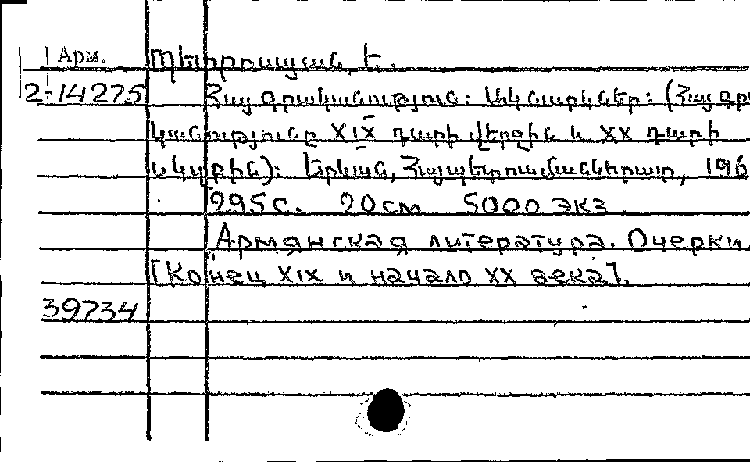 Арм. Պետրոսյան, Է.
2-14275 Հայ գրականություն: Ակնարկներ: (Հայ գրա
կանությունը XIX դարի վերջին և XX դարի
սկզբին): Երևան, Հայպետուսմանկհրատ, 196
295 с. 20 см 5000 экз
Армянская литература. Очерки.
[Конец XIX и начало XX века].
39734